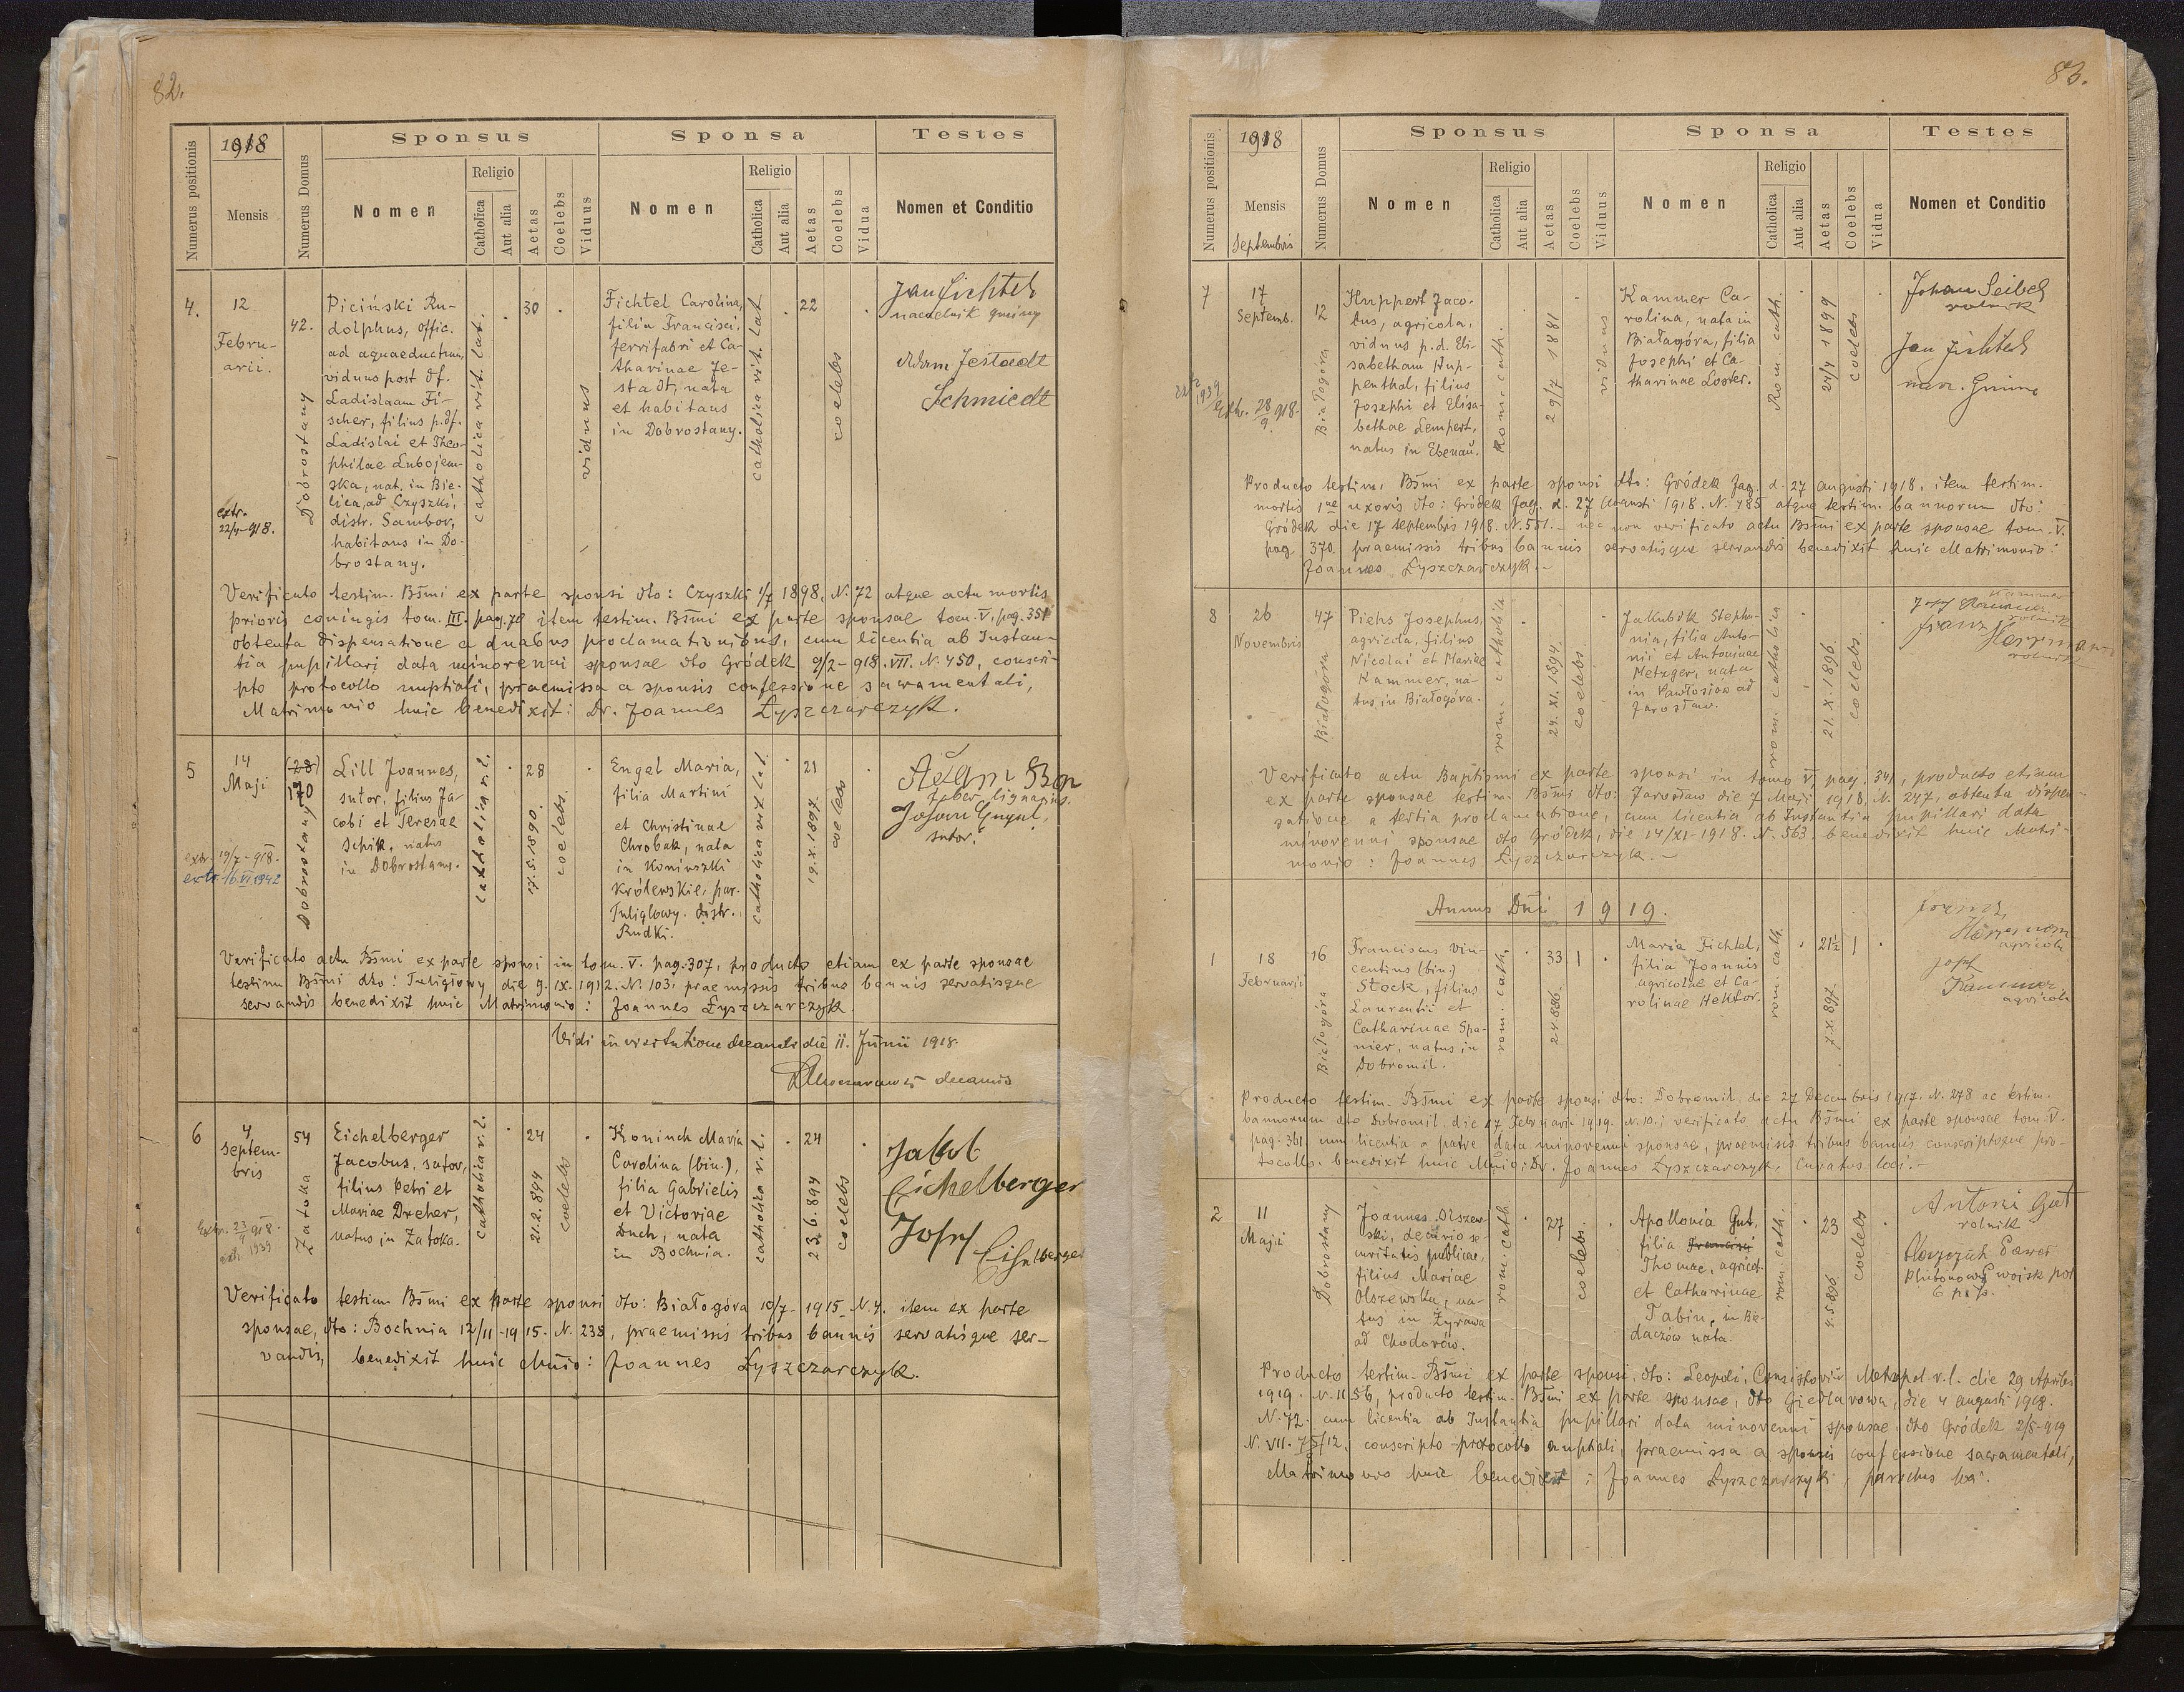 82.
Numerus positionis
1918
Mensis
Numerus Domus
Sponsus
Nomen
Religio
Catholica
Aut alia
Aetas
Coelebs
Viduus
Sponsa
Nomen
Religio
Catholica
Aut alia
Aetas
Coelebs
Vidua
Testes
Nomen et Conditio
4.
12
Febru-
arii.
extr.
22/4-918.
42.
Dobrostany
Piciński Ru-
dolphus, offic.
ad aquaeductum,
viduus post df.
Ladislaam Fi-
scher, filius p.df.
Ladislai et Theo-
philae Lubojem-
ska, nat. in Bie-
lica, ad Czyszki,
distr. Sambor,
habitans in Do-
brostany.
catholica rit. lat.
30
viduus
Fichtel Carolina,
filia Francisci,
ferrifabri et Ca-
tharinae Je-
stadt, nata
et habitans
in Dobrostany.
catholica rit. lat.
22
coelebs
Jan Fichtel
naczelnik gminy
Adam Jestaedt
Schmiedt
Verificato testim. Bsmi ex parte sponsi dto: Czyszki 1/7 1898, N. 72 atque actu mortis
prioris coniugis tom. III. pag. 70 item testim. Bsmi ex parte sponsae tom. V. pag. 351
obtenta dispensatione a duabus proclamationibus, cum licentia ab Instan-
tia pupillari data minorenni sponsae dto Gródek 9/2-918. VII. N. 450, conscri-
pto protocollo nuptiali, praemissa a sponsis confessione sacramentali,
Matrimonio huic benedixit: Dr. Joannes Łyszczarczyk.
5
14
Maji
extr. 19/7-918.
extr. 16.VI.1942
(28)
170
Dobrostany
Lill Joannes,
sutor, filius Ja-
cobi et Teresae
Schik, natus
in Dobrostany.
catholica r.l.
28
17.5.1890.
coelebs.
Engel Maria,
filia Martini
et Christinae
Chrobak, nata
in Koniuszki
Królewskie, par.
Tuligłowy. distr.
Rudki.
catholica rit lat.
21
19.X.1897.
coelebs
Adam Bon
faber lignarius.
Johan Gugul,
sutor.
Verificato actu Bsmi ex parte sponsi in tom. V. pag. 307, producto etiam ex parte sponsae
testimn Bsmi dto: Tuligłowy die 9. IX. 1912. N. 103. praemissis tribus bannis servatisque
servandis benedixit huic Matrimonio: Joannes Łyszczarczyk.
Vidi in visitatione decanali die 11. Junii 1918
decanus
6
4
Septem-
bris
Extr. 23/9 918.
extr. 1939
54
Zatoka
Eichelberger
Jacobus, sutor,
filius Petri et
Mariae Dreher,
natus in Zatoka.
catholica r.l.
24
21.2.894
coelebs
Koninck Maria
Carolina (bin.),
filia Gabrielis
et Victoriae
Duch, nata
in Bochnia.
catholica r.l.
24
23.6.894
coelebs
Jakob
Eichelberger
Josef
Eichelberger
Verificato testim. Bsmi ex parte sponsi dto: Białogóra 10/7-1915 N. 4. item ex parte
sponsae, dto: Bochnia 12/11-1915. N. 238, praemissis tribus bannis servatisque ser-
vandis, benedixit huic Mnio: Joannes Łyszczarczyk.
83.
Numerus positionis
1918
Mensis
Septembris
Numerus Domus
Sponsus
Nomen
Religio
Catholica
Aut alia
Aetas
Coelebs
Viduus
Sponsa
Nomen
Religio
Catholica
Aut alia
Aetas
Coelebs
Vidua
Testes
Nomen et Conditio
7
17
Septemb.
1939
Extr. 28/9 918.
12
Białogóra
Huppert Jaco-
bus, agricola,
viduus p.d. Eli-
sabetham Hup-
penthal, filius
Josephi et Elisa-
bethae Lempert,
natus in Ebenau.
Rom. cath.
29/7 1881
viduus
Kammer Ca-
rolina, nata in
Białagóra, filia
Josephi et Ca-
tharinae Loster.
Rom. cath.
24/4 1899
coelebs
Johan Seibel
rolnik
Jan Fichtel
nacz. Gminy
Producto testim. Bsmi ex parte sponsi dto: Gródek Jag. d. 27 augusti 1918, item testim.
mortis 1ae uxoris dto: Gródek Jag. d. 27 Augusti 1918. N. 485 atque testim. bannorum dto:
Gródek die 17 septembris 1918. N. 551. - nec non verificato actu Bsmi ex parte sponsae tom. V.
pag. 370. praemissis tribus bannis servatisque servandis benedixit huic Matrimonio:
Joannes Łyszczarczyk.
8
26
Novembris
47
Białogóra
Piehs Josephus,
agricola, filius
Nicolai et Mariae
Kammer, na-
tus in Białogóra.
rom. catholica
24. XI. 1894.
coelebs
Jakubik Stepha-
nia, filia Anto-
nii et Antoninae
Metzger, nata
in Pawłosiów ad
Jarosław.
rom. catholica
21. X. 1896.
coelebs
Kammer
Josef Kammer
rolnik
Franz
Herrman
rolnik
Verificato actu Baptismi ex parte sponsi in tomo V. pag. 341, producto etiam
ex parte sponsae testim. Bsmi dto: Jarosław die 7 Maji 1918, N. 247, obtenta dispen-
satione a tertia proclamatione, cum licentia ab Instantia pupillari data
minorenni sponsae dto Gródek, die 14/XI-1918. N. 563. benedixit huic Matri-
monio: Joannes Łyszczarczyk.
Annus Dni 1919.
1
18
Februarii
16
Białogóra
Franciscus Vin-
centius (bin.)
Stock, filius
Laurentii et
Catharinae Spa-
nier, natus in
Dobromil.
rom. cath.
33
1
Maria Fichtel,
filia Joannis
agricolae et Ca-
rolinae Hektor.
rom. cath.
21½
7.X.897.
1
Franz
Herrmann
agricola
Josef
Kammer
agricola
Producto testim. Bsmi ex parte sponsi dto: Dobromil, die 27 Decembris 1917. N. 278 ac testim.
bannorum dto Dobromil, die 17 Februarii 1919. N. 10.; verificato actu Bsmi ex parte sponsae tom. V.
pag. 361 cum licentia a patre data minorenni sponsae, praemissis tribus bannis conscriptoque pro-
tocollo. benedixit huic Mnio: Dr. Joannes Łyszczarczyk, Curatus loci.
2
11
Maji
Dobrostany
Joannes Olszew-
ski, decurio se-
curitatis publicae,
filius Mariae
Olszewska, na-
tus in Żyrawa
ad Chodorów.
rom. cath
27
coelebs.
Apollonia Gut,
filia Francisci
Thomae, agricol.
et Catharinae
Tabin, in Bie-
daczów nata.
rom. cath.
23
4.5.896
coelebs
Antoni Gut
rolnik
Paweł
Plutonowy wojsk pol
6 p.p.
Producto testim. Bsmi ex parte sponsi, dto: Leopoli, Consistorium Metropol. r.l. die 29 Aprilis
1919. N. 1156, producto testim. Bsmi ex parte sponsae, dto Giedlarowa, die 4 augusti 1918.
N. 72. cum licentia ab Instantia pupillari data minorenni sponsae dto Gródek 2/5-919
N. VII. 75/12, conscripto protocollo nuptiali, praemissa a sponsis confessione sacramentali,
Matrimonio huic benedixit: Joannes Łyszczarczyk, parochus loci.